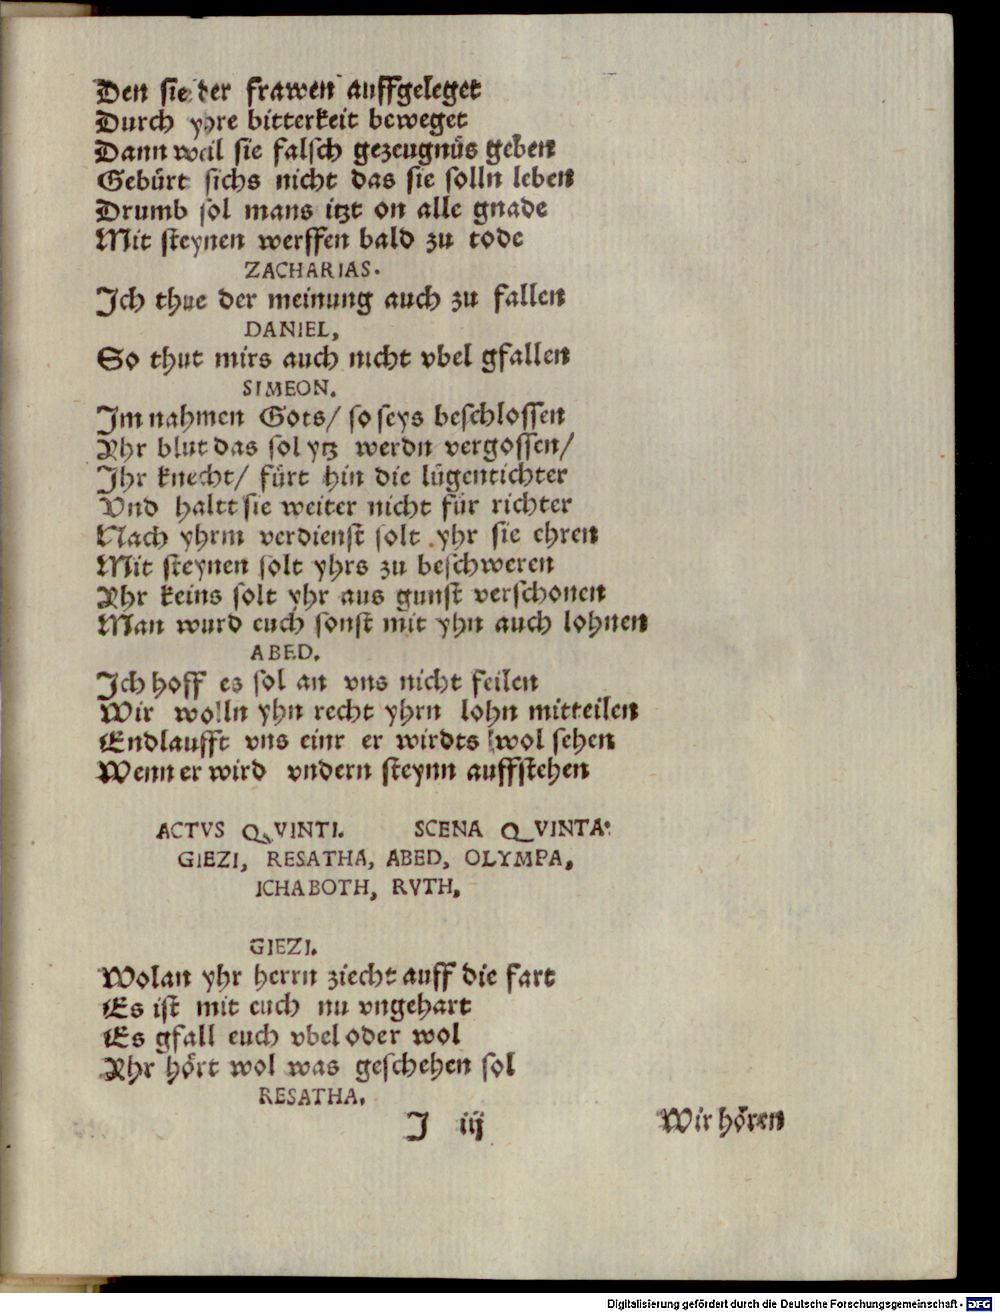 Den sie der frawen auffgeleget
Durch yhre bitterkeit beweget
Dann weil sie falsch gezeugnüs geben
Gebürt sichs nicht das sie solln leben
Drumb sol mans itzt on alle gnade
Mit steynen werffen bald zu tode
ZACHARIAS.
Ich thue der meinung auch zu fallen
DANIEL,
So thut mirs auch nicht vbel gfallen
SIMEON.
Im nahmen Gots/ so seys beschlossen
Yhr blut das sol ytz werdn vergossen/
Ihr knecht/ fürt hin die lügentichter
Vnd haltt sie weiter nicht für richter
Nach yhrm verdienst solt yhr sie ehren
Mit steynen solt yhrs zu beschweren
Yhr keins solt yhr aus gunst verschonen
Man wurd euch sonst mit yhn auch lohnen
ABED.
Ich hoff es sol an vns nicht feilen
Wir wolln yhn recht yhrn lohn mitteilen
Endlaufft vns einr er wirdts wol sehen
Wenn er wird vndern steynn auffstehen
ACTVS QVINTI. SCENA QVINTA.
GIEZI, RESATHA, ABED, OLYMPA,
ICHABOTH, RVTH,
GIEZI.
Wolan yhr herrn ziecht auff die fart
Es ist mit euch nu vngehart
Es gfall euch vbel oder wol
Yhr hört wol was geschehen sol
RESATHA.
I iij Wir hören
Digitalisierung gefördert durch die Deutsche Forschungsgemeinschaft - DFG